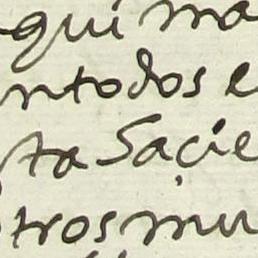 qui ma
ntodos e
ta Saçie
tros mu